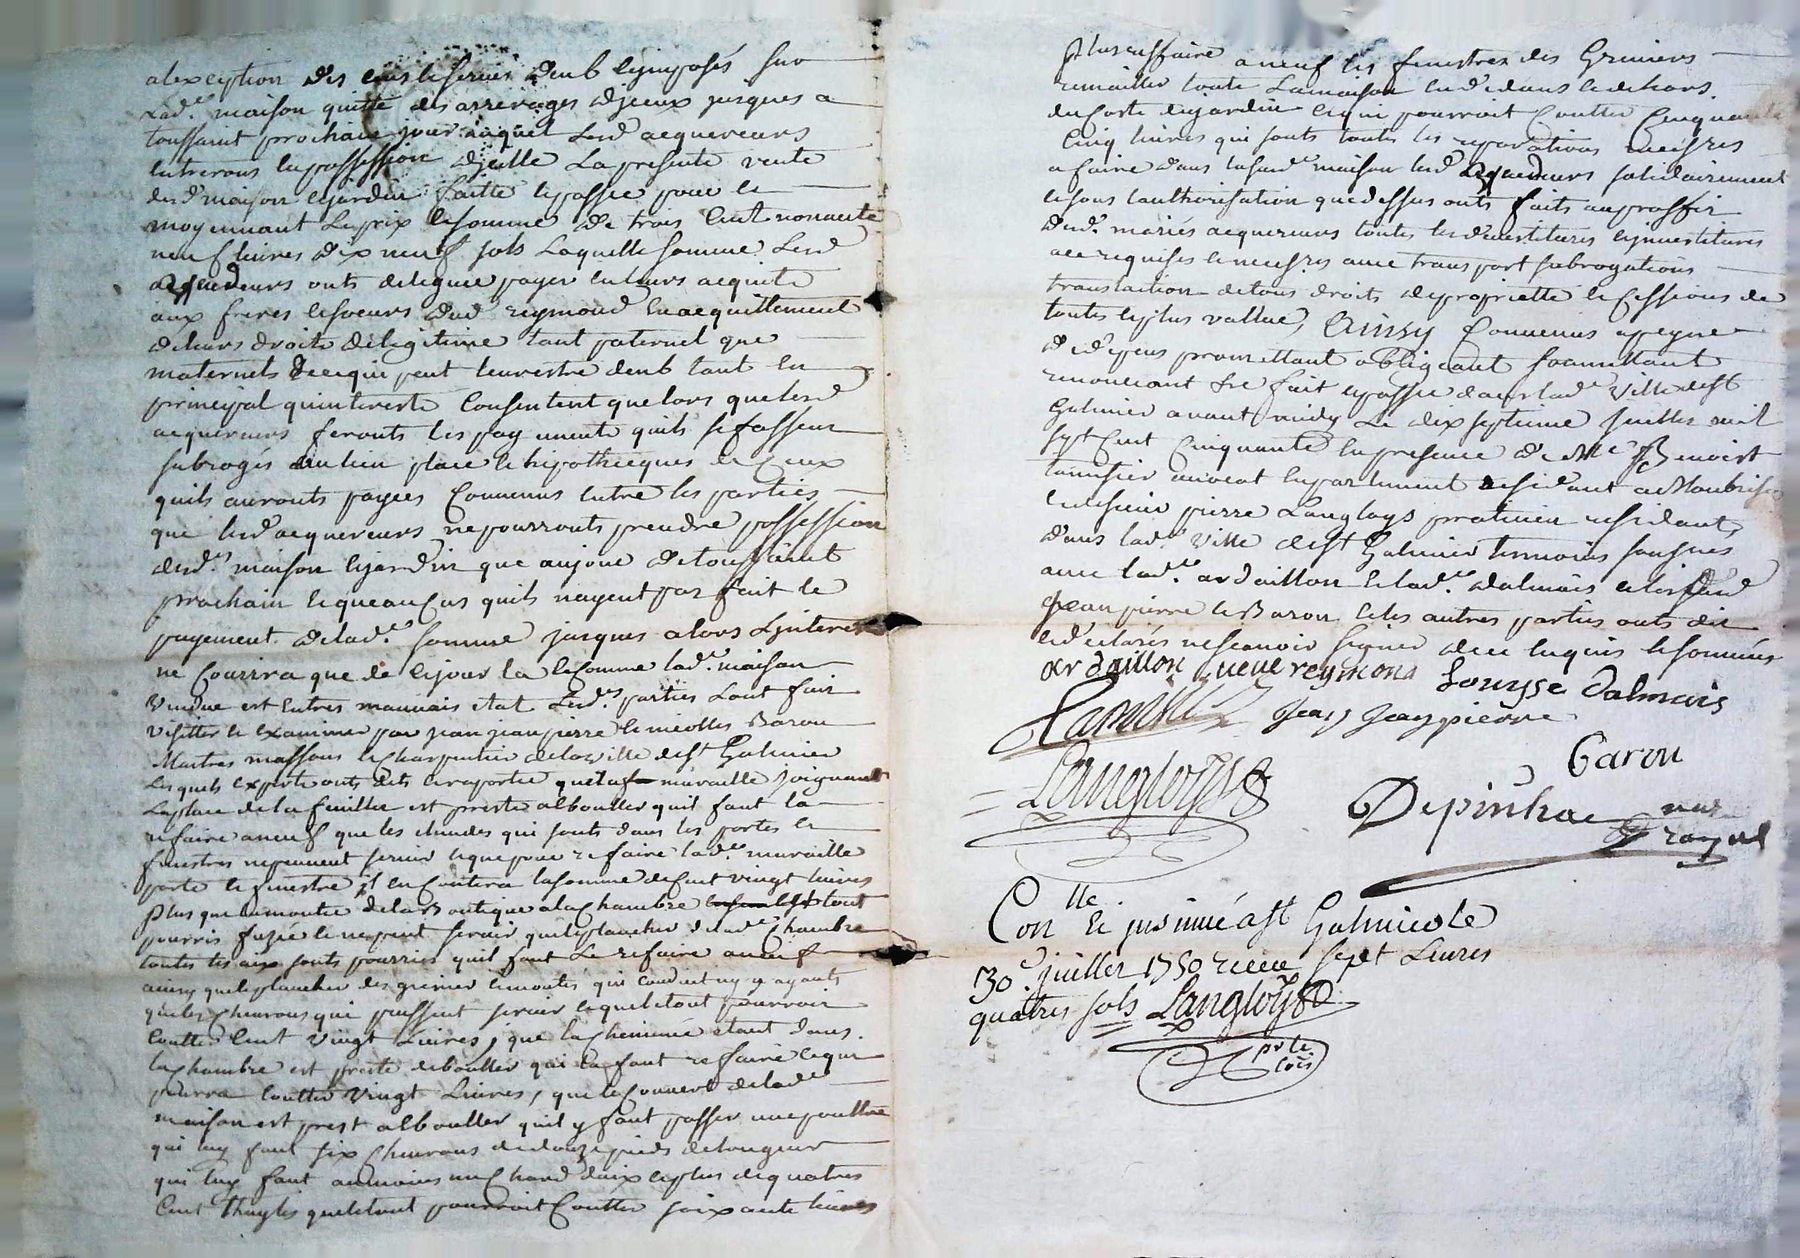 alexception des cens et servis deub et imposés sur
lad.e maison quitte des arrerages djceux jusques a
toussaint prochain jour auquel lesd acquereurs
entreronts en possession djcelle La presente vente
desd maison et jardin faitte et passée pour et
moyennant le prix et somme de trois cent nonante
neuf livres dix neuf sols Laquelle somme lesd
acquereurs onts delegué payer en leurs acquits
aux freres et soeurs dud reymond en acquittement
de leurs droits de legitime tant paternel que
maternels et ce qui peut leur estre deub tant en
principal qu'interests Consentent que lors que lesd
acquereurs feronts les payements quils se fassent
subrogés au lieu place et hipothecques de Ceux
quils auronts payées Convenus entre les parties
que lesd acquereurs ne pourronts prendre possession
desd.s maison et jardin que aujour de toussaint
prochain et que au Cas quils nayent pas fait le
payement de lad.e somme jusques alors Linterest
ne Courira que de ce jour la et Comme lad.e maison
vendue est entres mauvais etat lesd.s parties L'ont fait
visitter et examiner par jean jeanpierre et nicollas Baron
Maitres massons et Charpentier de la ville de st Galmier
Lesquels experts onts dits et raporté que la muraille joignant
La place de la feuillee est preste a boulter quil faut la
refaire a neuf que les etendes qui sonts dans les portes et
fenestres ne peuvent servir et que pour refaire lad.e muraille
porte et fenestre il en Coutera la somme de Cent vingt livres
Plus que la montée de la Boutique a la Chambre est tout
pourris fuzée et ne peut servir que le plancher de lad.e Chambre
toutes les aix sonts pourries quil faut Le refaire a neuf
ainsy que le plancher des grenier et montés qui conduit ny y ayants
que les Chevrons qui puissent servir et que le tout pourroit
Coutter Cent vingt Livres, que la Cheminée etant dans
la Chambre est preste de boulter quil la faut refaire ce qui
pourra Coutter vingt Livres, que le Couvert de lad.e
maison est prest a boulter quil y faut passer une pouttre
qui luy faut six Chevrons de douze pieds de longueur
qui luy faut aumoins un Chard daix et plus de quatres
Cent thuyles que le tout pourroit Coutter soixante livres
Plus reffaire a neuf les fenestres des Greniers
remailler toute La maison en dedans et dehors
du Costé du jardin ce qui pourroit Coutter Cinquante
Cinq livres qui sonts toute les reparations necesres
a faire dans la susd.e maison lesd acquereurs solidairement
et sous l'authorisation que dessus onts faits au proffit
desd.s mariés acquereurs toutes les devestitures et jnvestitures
a ce requises et necesres avec transport subrogations
translation de tous droits de propriette et Cessions de
toutes et plus vallue, Ainsy Convenus a peyne
de depens promettant obligeant soumettant
renonceant &c fait et passée dans lad.e ville de st
Galmier avant midy Le dix septieme juillet mil
sept Cent Cinquante en presence de Me Benoist
tamisier avocat en parlement residant a Montbrison
et de sieur pierre Langloys praticien residant
dans lad.e ville de st Galmier temoins sousnes
avec lad.e ardaillon et lad.e dalmais et lesd
jean pierre et Baron et les autres parties onts dit
et declarés ne scavoir signer de ce enquis et sommées
ardaillon veuve reymond Louyse dalmais
jean jeanpierre
Langloys
Baron
Depinhac
Con.lle et insinué a st Galmier le
30.e juillet 1750 receu sept Livres
quatres sols Langloys